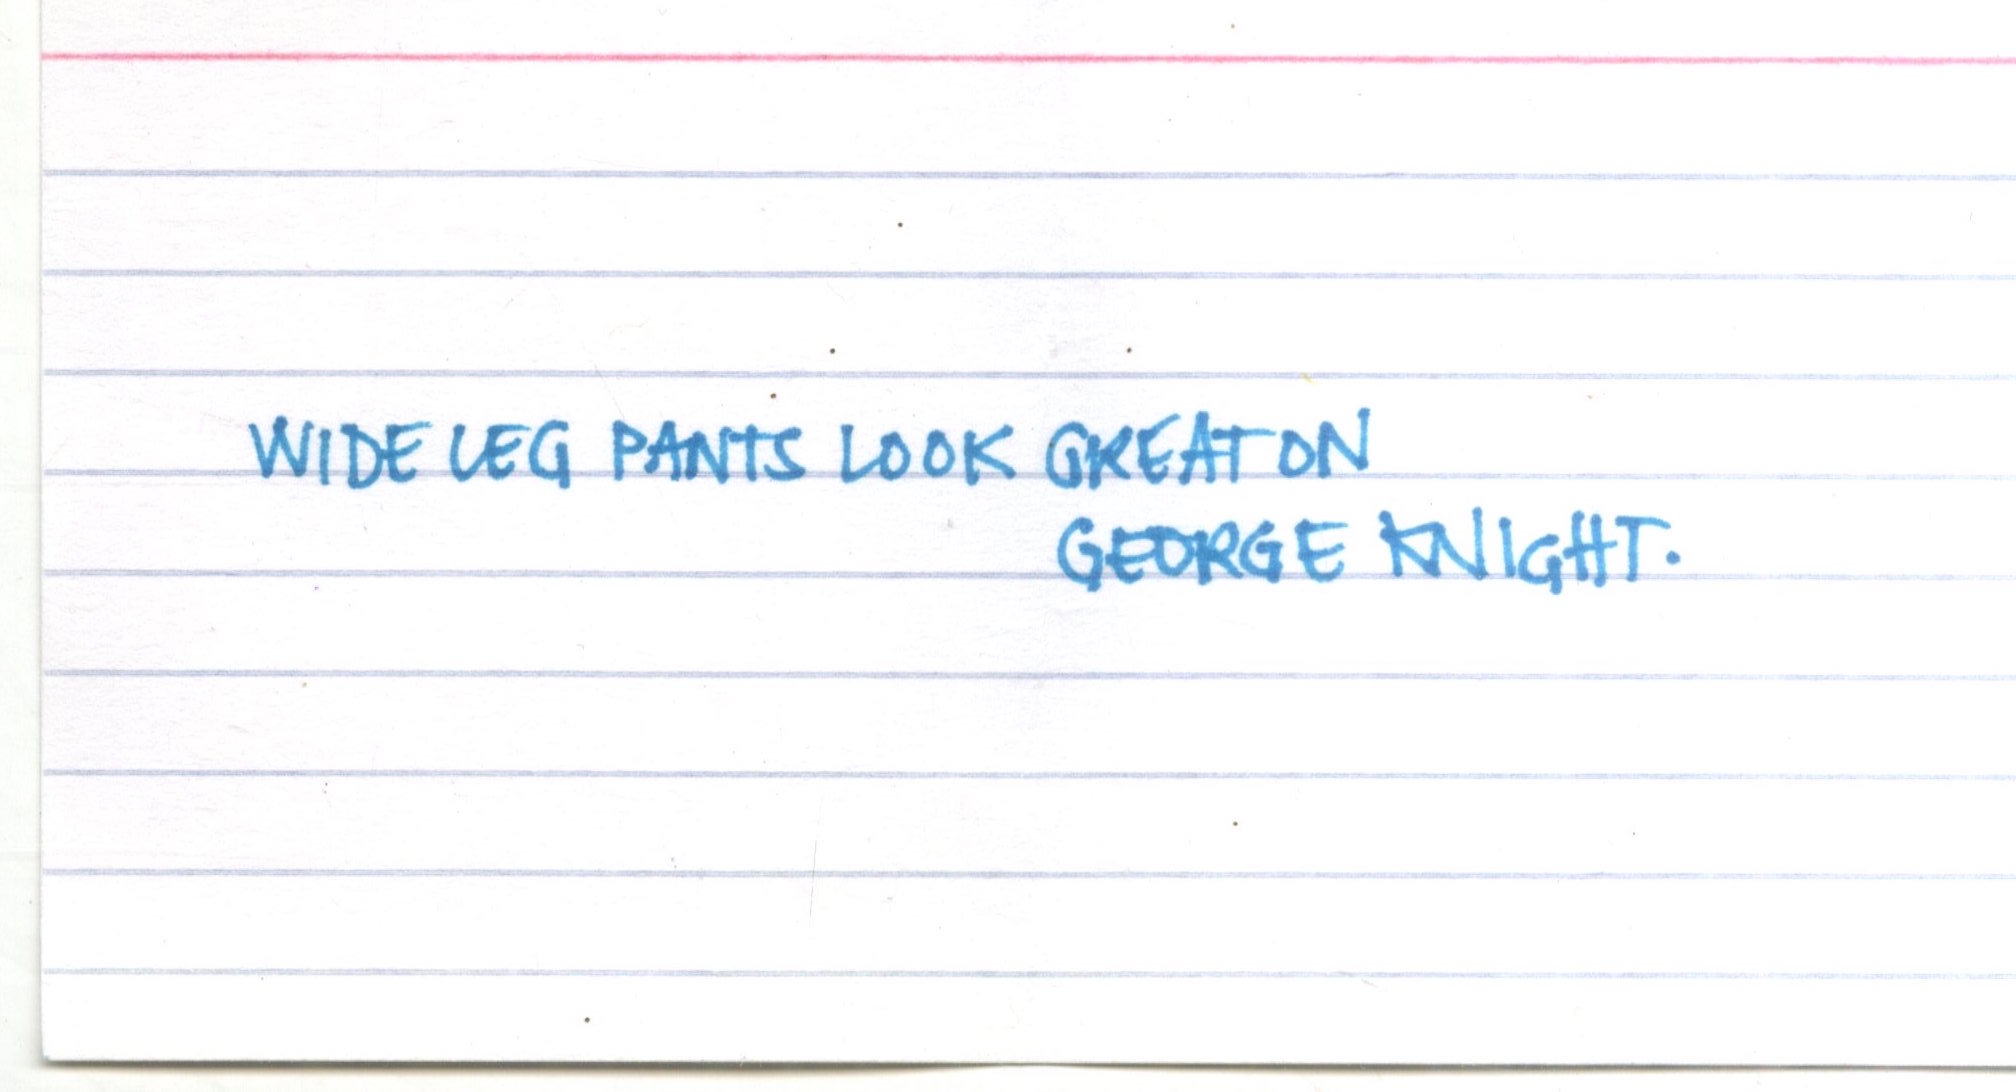 WIDE LEG PANTS LOOK GREAT ON
GEORGE KNIGHT.